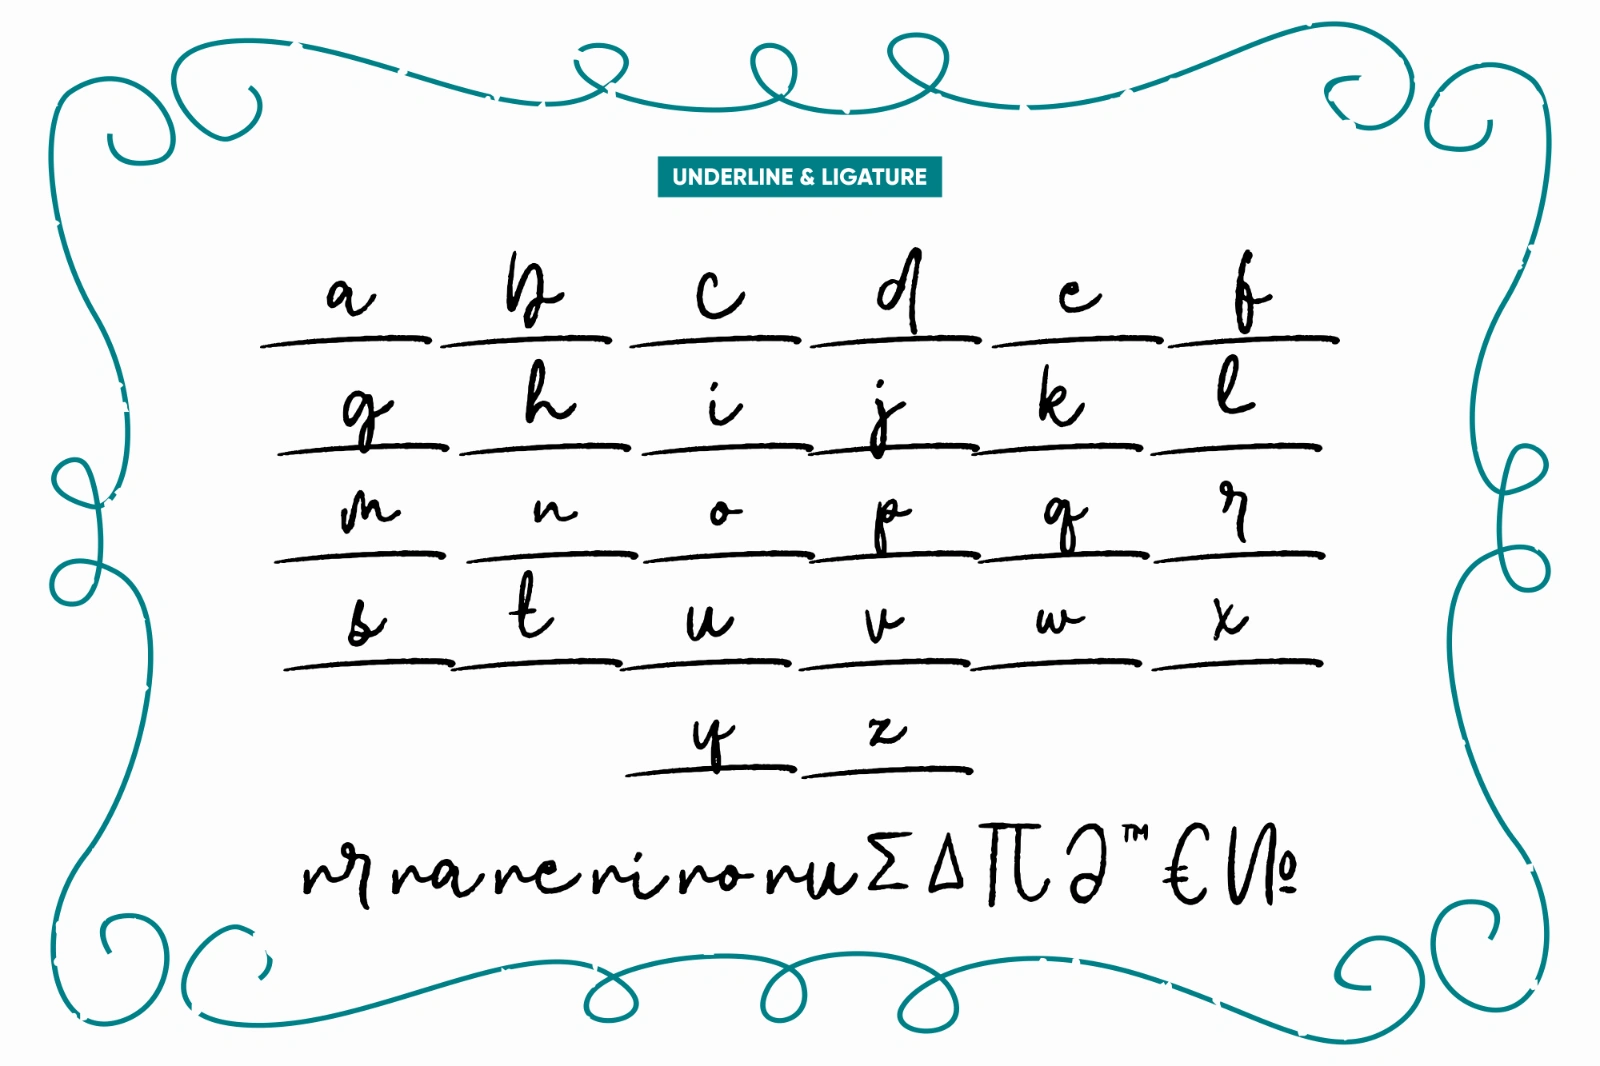 UNDERLINE & LIGATURE
a b c d e f
g h i j k l
m n o p q r
s t u v w x
y z
rr ra re ri ro ru Σ Δ π ∂ ™ € №